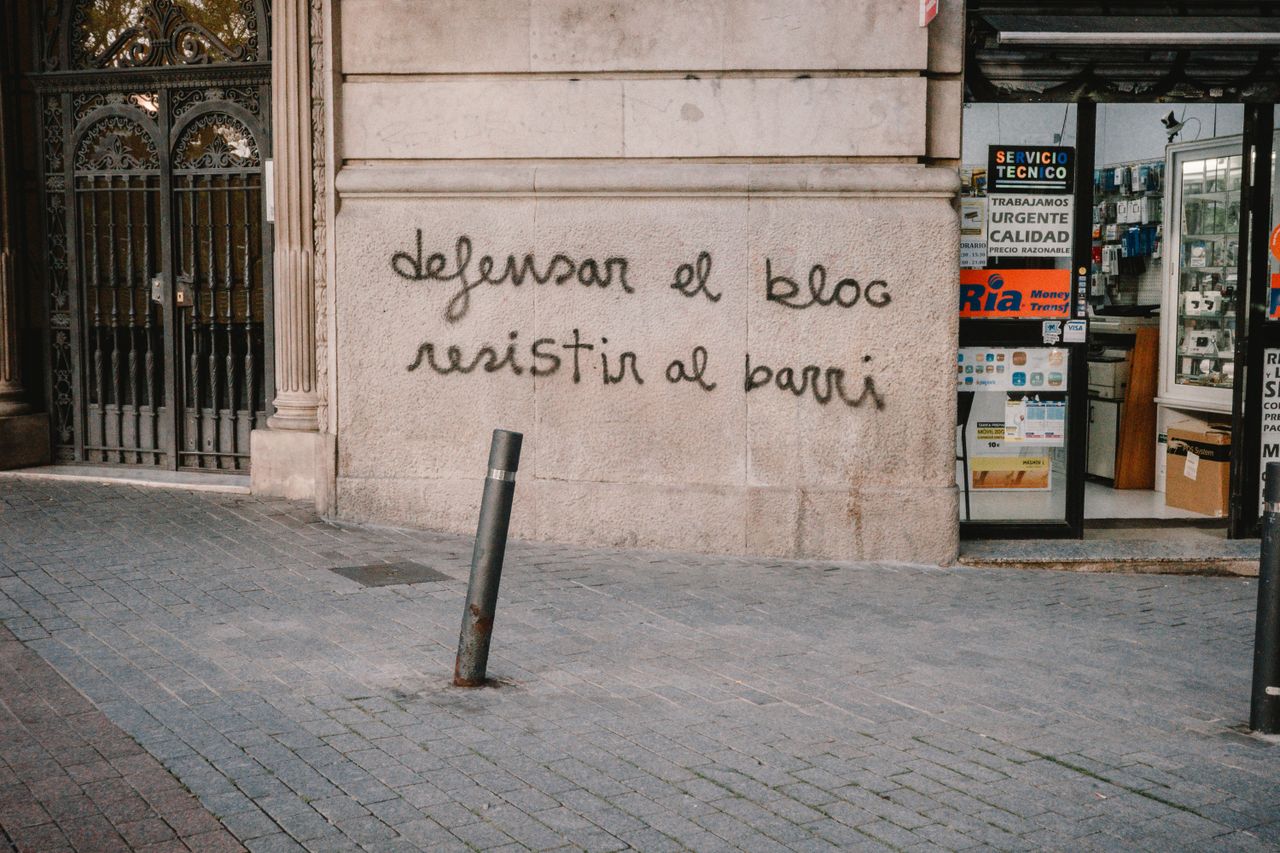 defensar el bloc
resistir al barri
SERVICIO
TECNICO
TRABAJAMOS
URGENTE
CALIDAD
PRECIO RAZONABLE
Ria Money
Transf
VISA